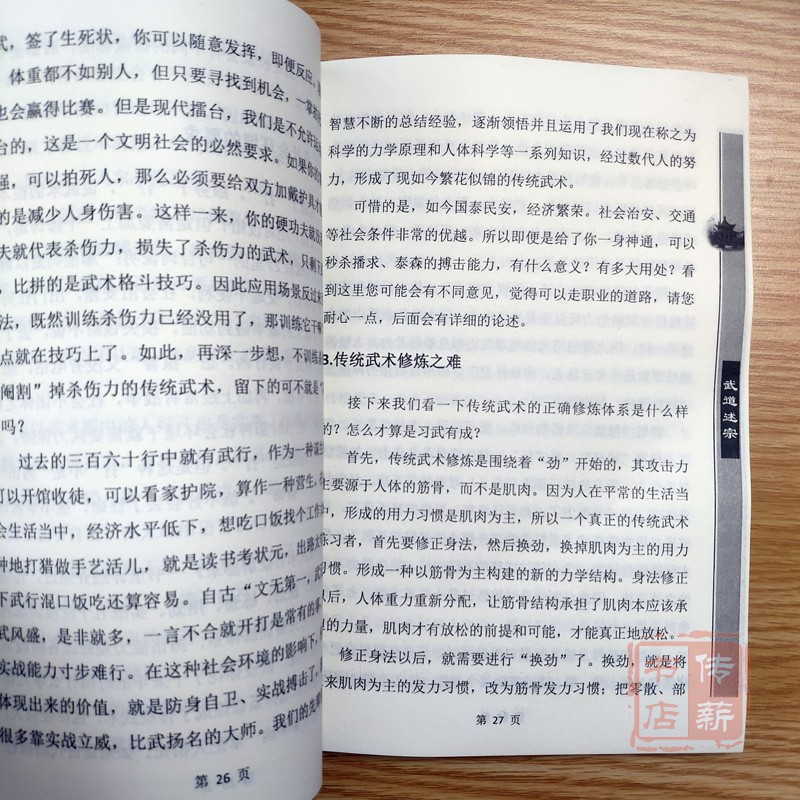 式，签了生死状，你可以随意发挥，即便反应、
体重都不如别人，但只要寻找到机会，一掌
也会赢得比赛。但是现代擂台，我们是不允许
台的，这是一个文明社会的必然要求。如果你的
强，可以拍死人，那么必须要给双方加戴护具
的是减少人身伤害。这样一来，你的硬功夫就
夫就代表杀伤力，损失了杀伤力的武术，只剩下
，比拼的是武术格斗技巧。因此应用场景反过来
法，既然训练杀伤力已经没用了，那训练它干嘛
点就在技巧上了。如此，再深一步想，不训练
阉割”掉杀伤力的传统武术，留下的可不就是
吗？
过去的三百六十行中就有武行，作为一种谋生
可以开馆收徒，可以看家护院，算作一种营生。
会生活当中，经济水平低下，想吃口饭找个工作
种地打猎做手艺活儿，就是读书考状元，出路
下武行混口饭吃还算容易。自古“文无第一，武
武风盛，是非就多，一言不合就开打是常有的事
实战能力寸步难行。在这种社会环境的影响下，
体现出来的价值，就是防身自卫、实战搏击了。
很多靠实战立威，比武扬名的大师。我们的先
第 26 页
智慧不断的总结经验，逐渐领悟并且运用了我们现在称之为
科学的力学原理和人体科学等一系列知识，经过数代人的努
力，形成了现如今繁花似锦的传统武术。
可惜的是，如今国泰民安，经济繁荣。社会治安、交通
等社会条件非常的优越。所以即便是给了你一身神通，可以
秒杀播求、泰森的搏击能力，有什么意义？有多大用处？看
到这里您可能会有不同意见，觉得可以走职业的道路，请您
耐心一点，后面会有详细的论述。
3.传统武术修炼之难
接下来我们看一下传统武术的正确修炼体系是什么样
的？怎么才算是习武有成？
首先，传统武术修炼是围绕着“劲”开始的，其攻击力
主要源于人体的筋骨，而不是肌肉。因为人在平常的生活当
中，形成的用力习惯是肌肉为主，所以一个真正的传统武术
练习者，首先要修正身法，然后换劲，换掉肌肉为主的用力
习惯。形成一种以筋骨为主构建的新的力学结构。身法修正
以后，人体重力重新分配，让筋骨结构承担了肌肉本应该承
担的力量，肌肉才有放松的前提和可能，才能真正地放松。
修正身法以后，就需要进行“换劲”了。换劲，就是将
来肌肉为主的发力习惯，改为筋骨发力习惯；把零散、部
第 27 页
武道迷宗
传薪
书店